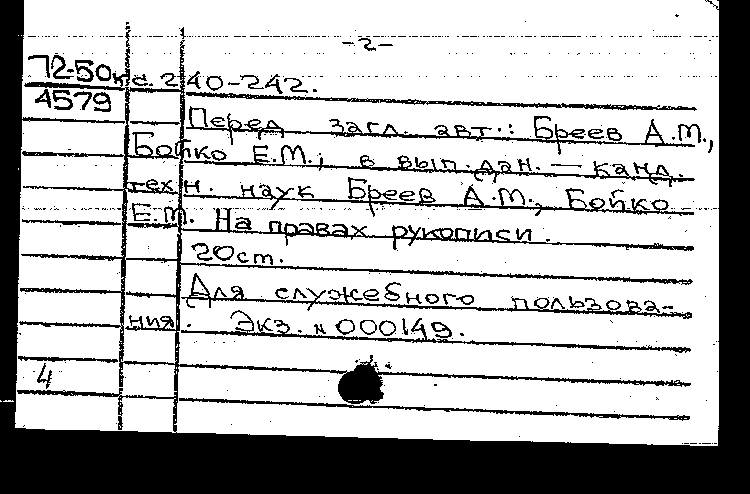 -2-
72-50к с. 240-242.
4579
Перед загл. авт.: Бреев А.М.,
Бойко Е.М.; в вып. дан. — канд.
техн. наук Бреев А.М., Бойко
Е.М. На правах рукописи.
20см.
Для служебного пользова-
ния. Экз. № 000149.
4